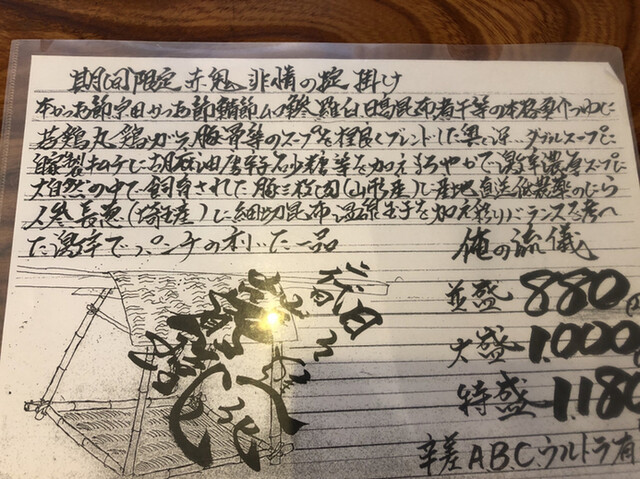 期間限定 赤鬼 非情の掟 掛け
本かつお節宗田かつお節鯖節ムロ鯵、羅臼、日高昆布煮干等の本格要のつゆに
若鶏丸、鶏ガラ、豚骨等のスープを程良くブレンドした奥深ダブルスープに
自家製キムチに胡麻油唐辛子砂糖等を加えまろやかで激辛濃厚スープに
大自然の中で飼育された豚三枚肉(山形産)に産地直送低農薬のにら
人参長葱(埼玉産)に細切昆布温泉玉子を加え彩りバランスを考へ
た激辛でパンチの利いた一品
俺の流儀
並盛 880
大盛 1.000
特盛 1.180
辛差 A.B.C.ウルトラ有